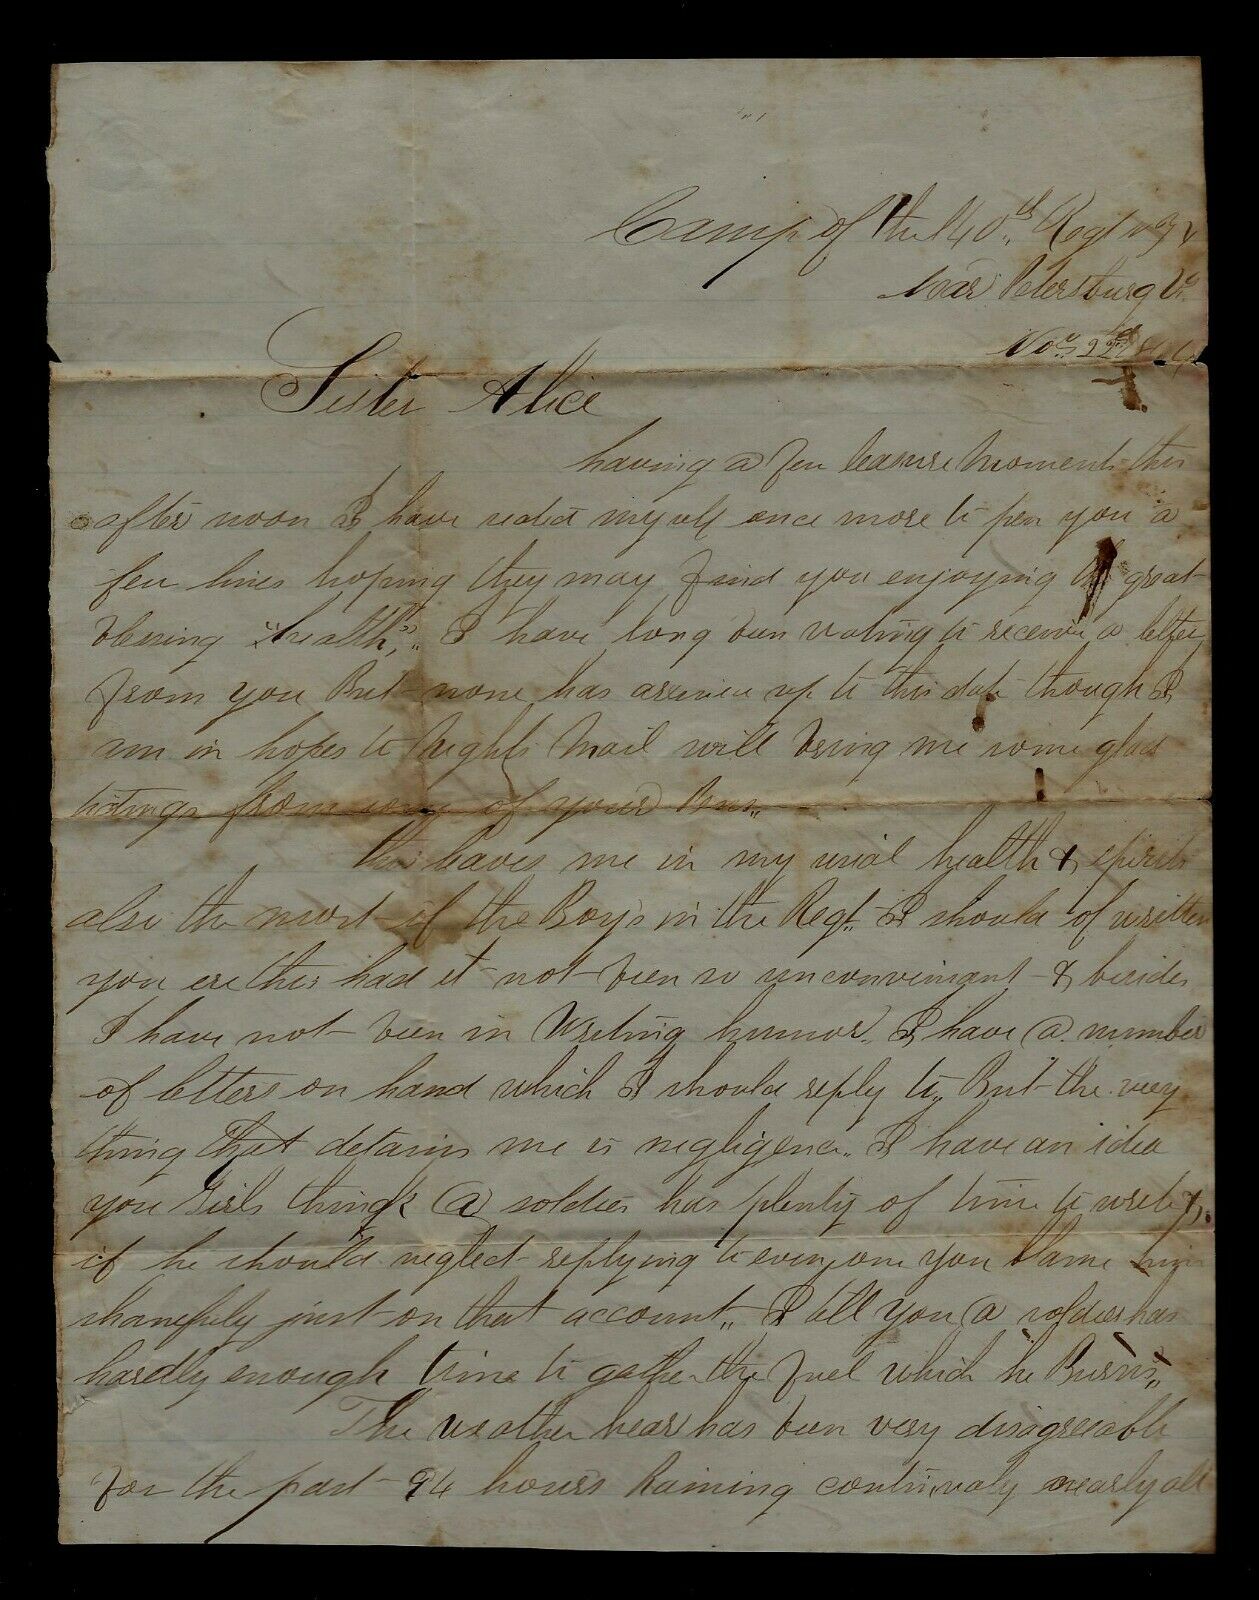 Camp of the 140th Regt N.Y.V
Near Petersburg Va
Nov 22nd 1864
Sister Alice
having a few leasure moments this
after noon I have sedet myself once more to pen you a
few lines hoping they may find you enjoying the great
blessing "health," I have long been wating to receive a letter
from you But none has arrived up to this date though I
am in hopes to nights Mail will bring me some glad
tidings from some of your Pens,,
this leaves me in my usial health & spirits
also the most of the Boys in the Regt,, I should of written
you ere this had it not been so unconveniant & besides
I have not been in Writing humor,, I have a number
of letters on hand which I should reply to,, But the very
thing That detains me is negligence,, I have an idea
you Girls think a soldier has plenty of time to write &
if he should neglect replying to everyone you blame him
shamefuly just on that account,, I tell you a soldier has
hardly enough time to gather the fuel which he Burns,,
The weather hear has been very disagreeable
for the past 94 hours Raining continualy nearly all